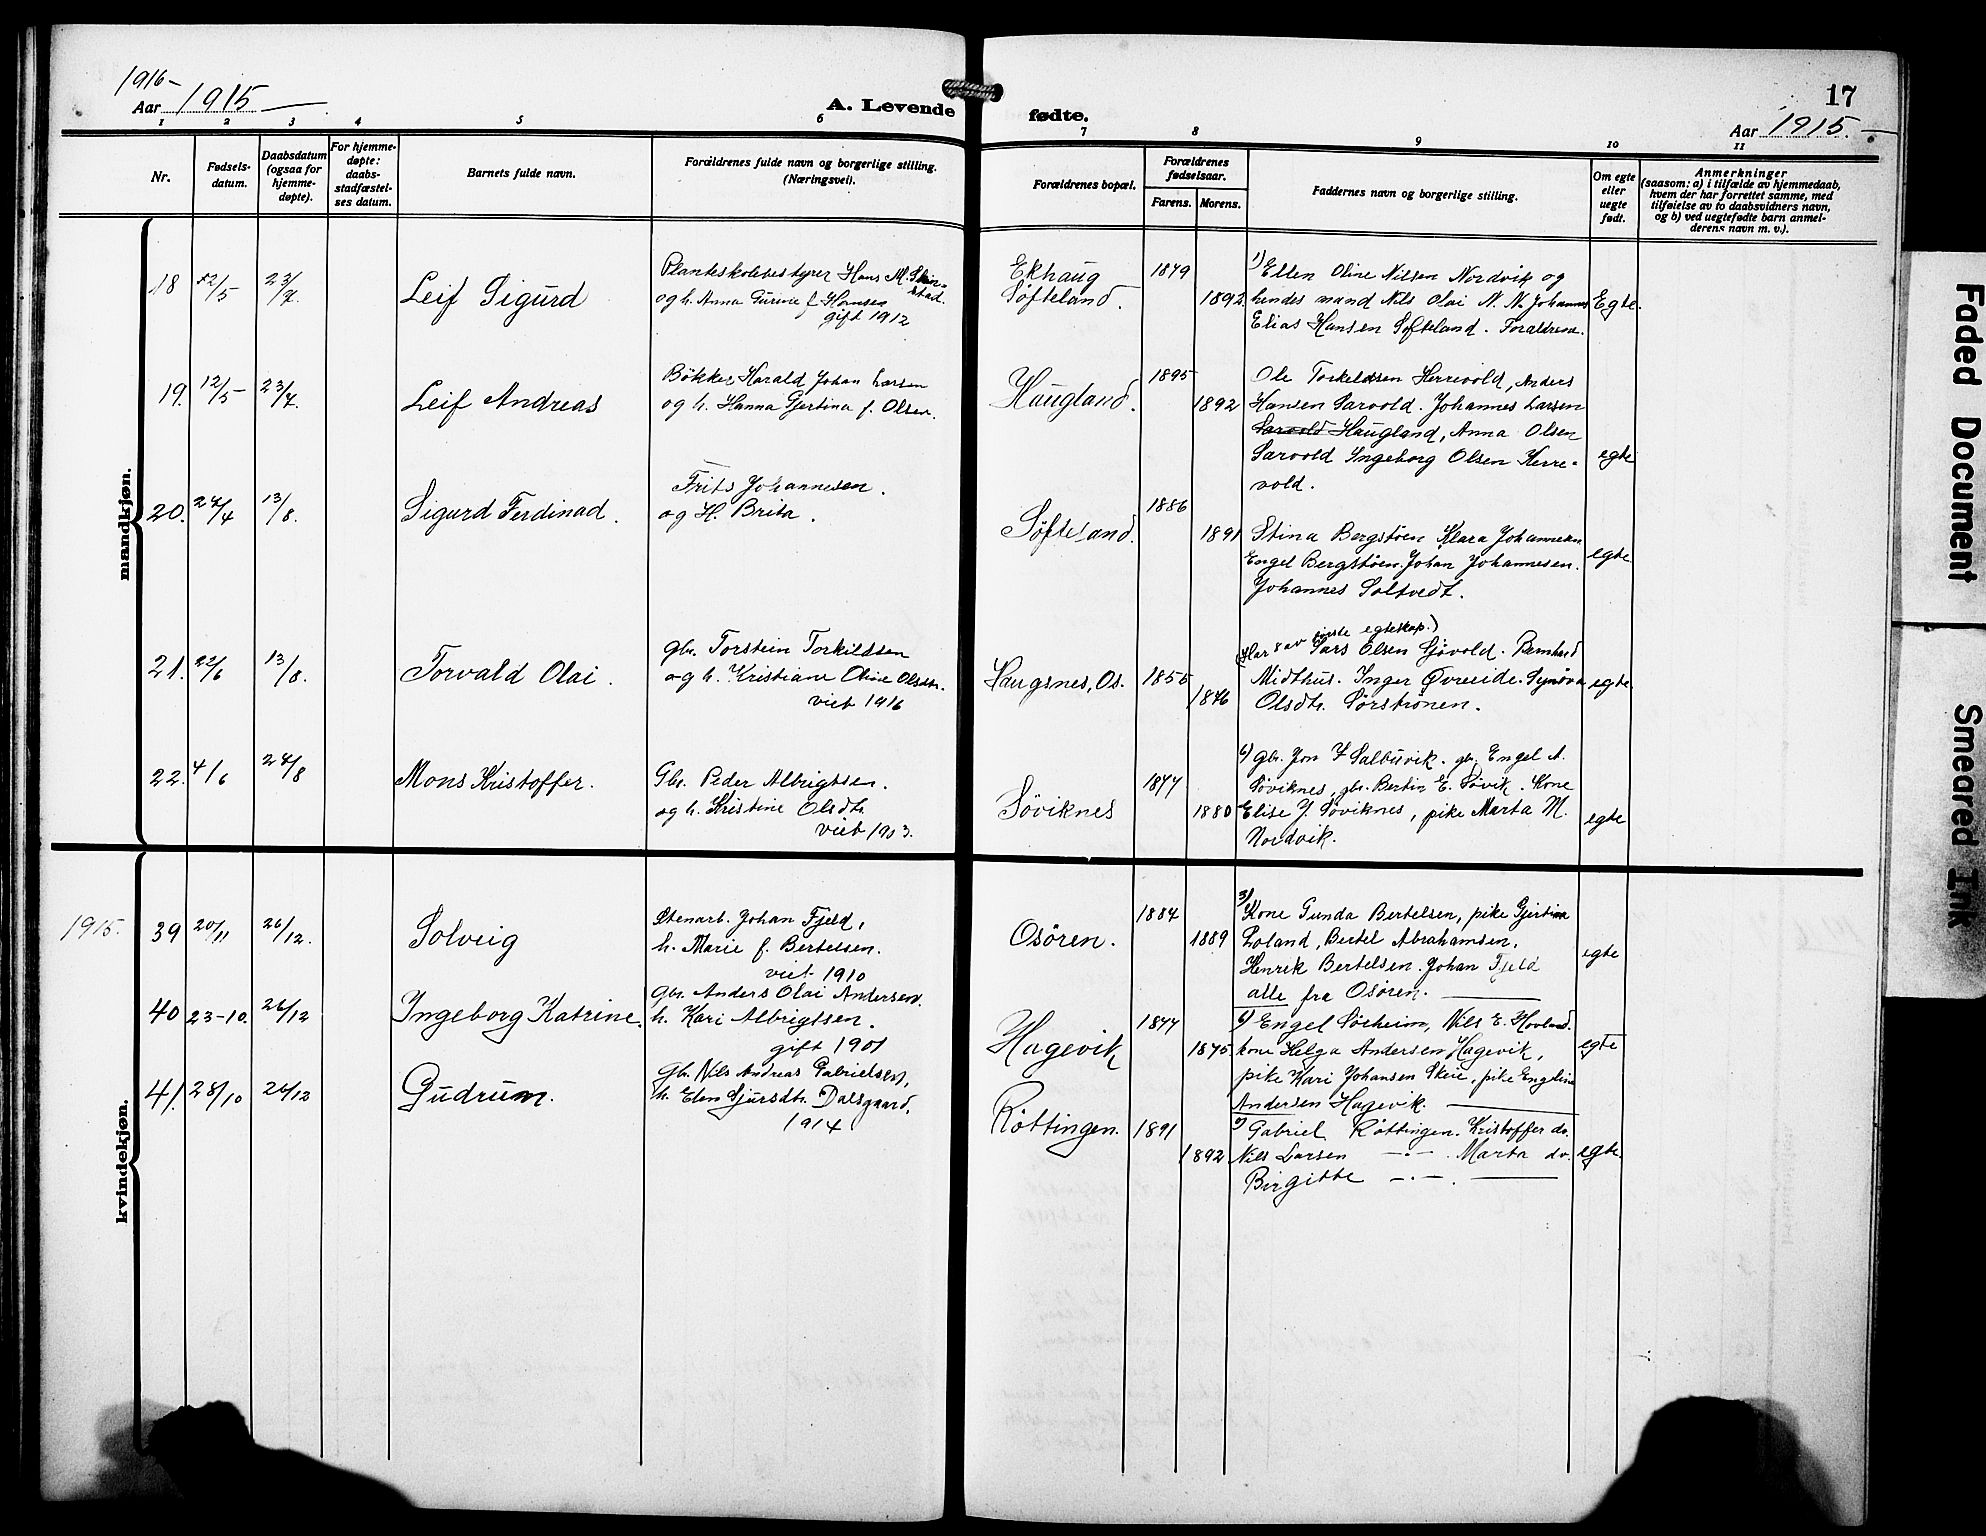 1916-
Aar 1915
A. Levende
fødte.
17
Aar 1915.
1 2 3 4 5 6 7 8 9 10 11
Nr.
Fødsels-
datum.
Daabsdatum
(ogsaa for
hjemme-
døpte).
For hjemme-
døpte:
daabs-
stadfæstel-
ses datum.
Barnets fulde navn.
Forældrenes fulde navn og borgerlige stilling.
(Næringsvei).
Forældrenes bopæl.
Forældrenes
fødselsaar.
Farens. Morens.
Faddernes navn og borgerlige stilling.
Om egte
eller
uegte
født.
Anmerkninger
(saasom: a) i tilfælde av hjemmedaab,
hvem der har forrettet samme, med
tilføielse av to daabsvidners navn,
og b) ved uegtefødte barn anmel-
derens navn m. v.).
mandkjøn.
18
23/7
Leif Sigurd
Planteskolebestyrer Hans M.
og h. Anna Gurine f.
gift 1912
Ekhaug
Søfteland.
1879
1892.
1) Ellen Oline Nilsen Nordvik og
hendes mand Nils Olai N. N. Johannes
Elias Hansen Søfteland. Forældrene.
Egte.
19. 12/5- 23/7.
Leif Andreas
Bøkker Harald Johan Larsen
og h. Hanna Gjertina f. Olsen.
Haugland.
1895
1892
Ole Torkeldsen Herrevold, Anders
Hansen Sarvold. Johannes Larsen
Sarvold Haugland, Anna Olsen
Sarvold Ingeborg Olsen Herre-
vold.
egte
20. 24/4 13/8.
Sigurd Ferdinad.
Frits Johannesen.
og H. Brita.
Søfteland.
1886
1891
Stina Bergstøen Klara Johannesen
Engel Bergstøen. Johan Johannesen.
Johannes Soltvedt.
egte.
21. 22/6 13/8.
Torvald Olai.
gbr. Torstein Torkildsen
og h. Kristiane Oline Olsdtr.
viet 1916
Haugsnes, Os.
1855
1876
(Har 8 av første egteskap.)
Lars Olsen Sjøvold. Bernhard
Midthus. Inger Øvreeide. Synøva
Olsdtr. Sørstrønen.
egte.
22. 4/6 24/8
Mons Kristoffer.
Gbr. Peder Albrigtsen.
og h. Kristine Olsdtr.
viet 1903.
Søviknes
1877
1880
6) gbr. Jon Salbuvik. gbr. Engel A.
Søviknes, gbr. Bertin E. Søvik. Kone
Elise J. Søviknes, pike Marta M.
Nordvik.
egte
kvindekjøn.
1915. 39 20/11 26/12.
Solveig
Stenarb. Johan Fjeld,
h. Marie f. Bertelsen.
viet 1910
Osøren.
1884
1889
3) Kone Gunda Bertelsen, pike Gjertina
Loland, Bertel Abrahamsen,
Henrik Bertelsen. Johan Fjeld
alle fra Osøren.
egte
40 23-10. 26/12
Ingeborg Katrine.
gbr. Anders Olai Andersen.
h. Kari Albrigtsen.
gift 1901
Hagevik
1877
1875.
6) Engel Sørheim, Nils E. Hovland.
kone Helga Andersen Hagevik,
pike Kari Johansen Skeie, pike Engeline
Andersen Hagevik.
egte
41. 28/10 26/12
Gudrum.
gb. Nils Andreas Gabrielsen,
h. Elen Sjursdtr. Dalsgaard,
1914
Røttingen.
1891
1892
Gabriel Røttingen. Kristoffer do.
Nils Larsen —"— . Marta do.
Birgitte —"—.
egte.
Faded Document
Smeared Ink